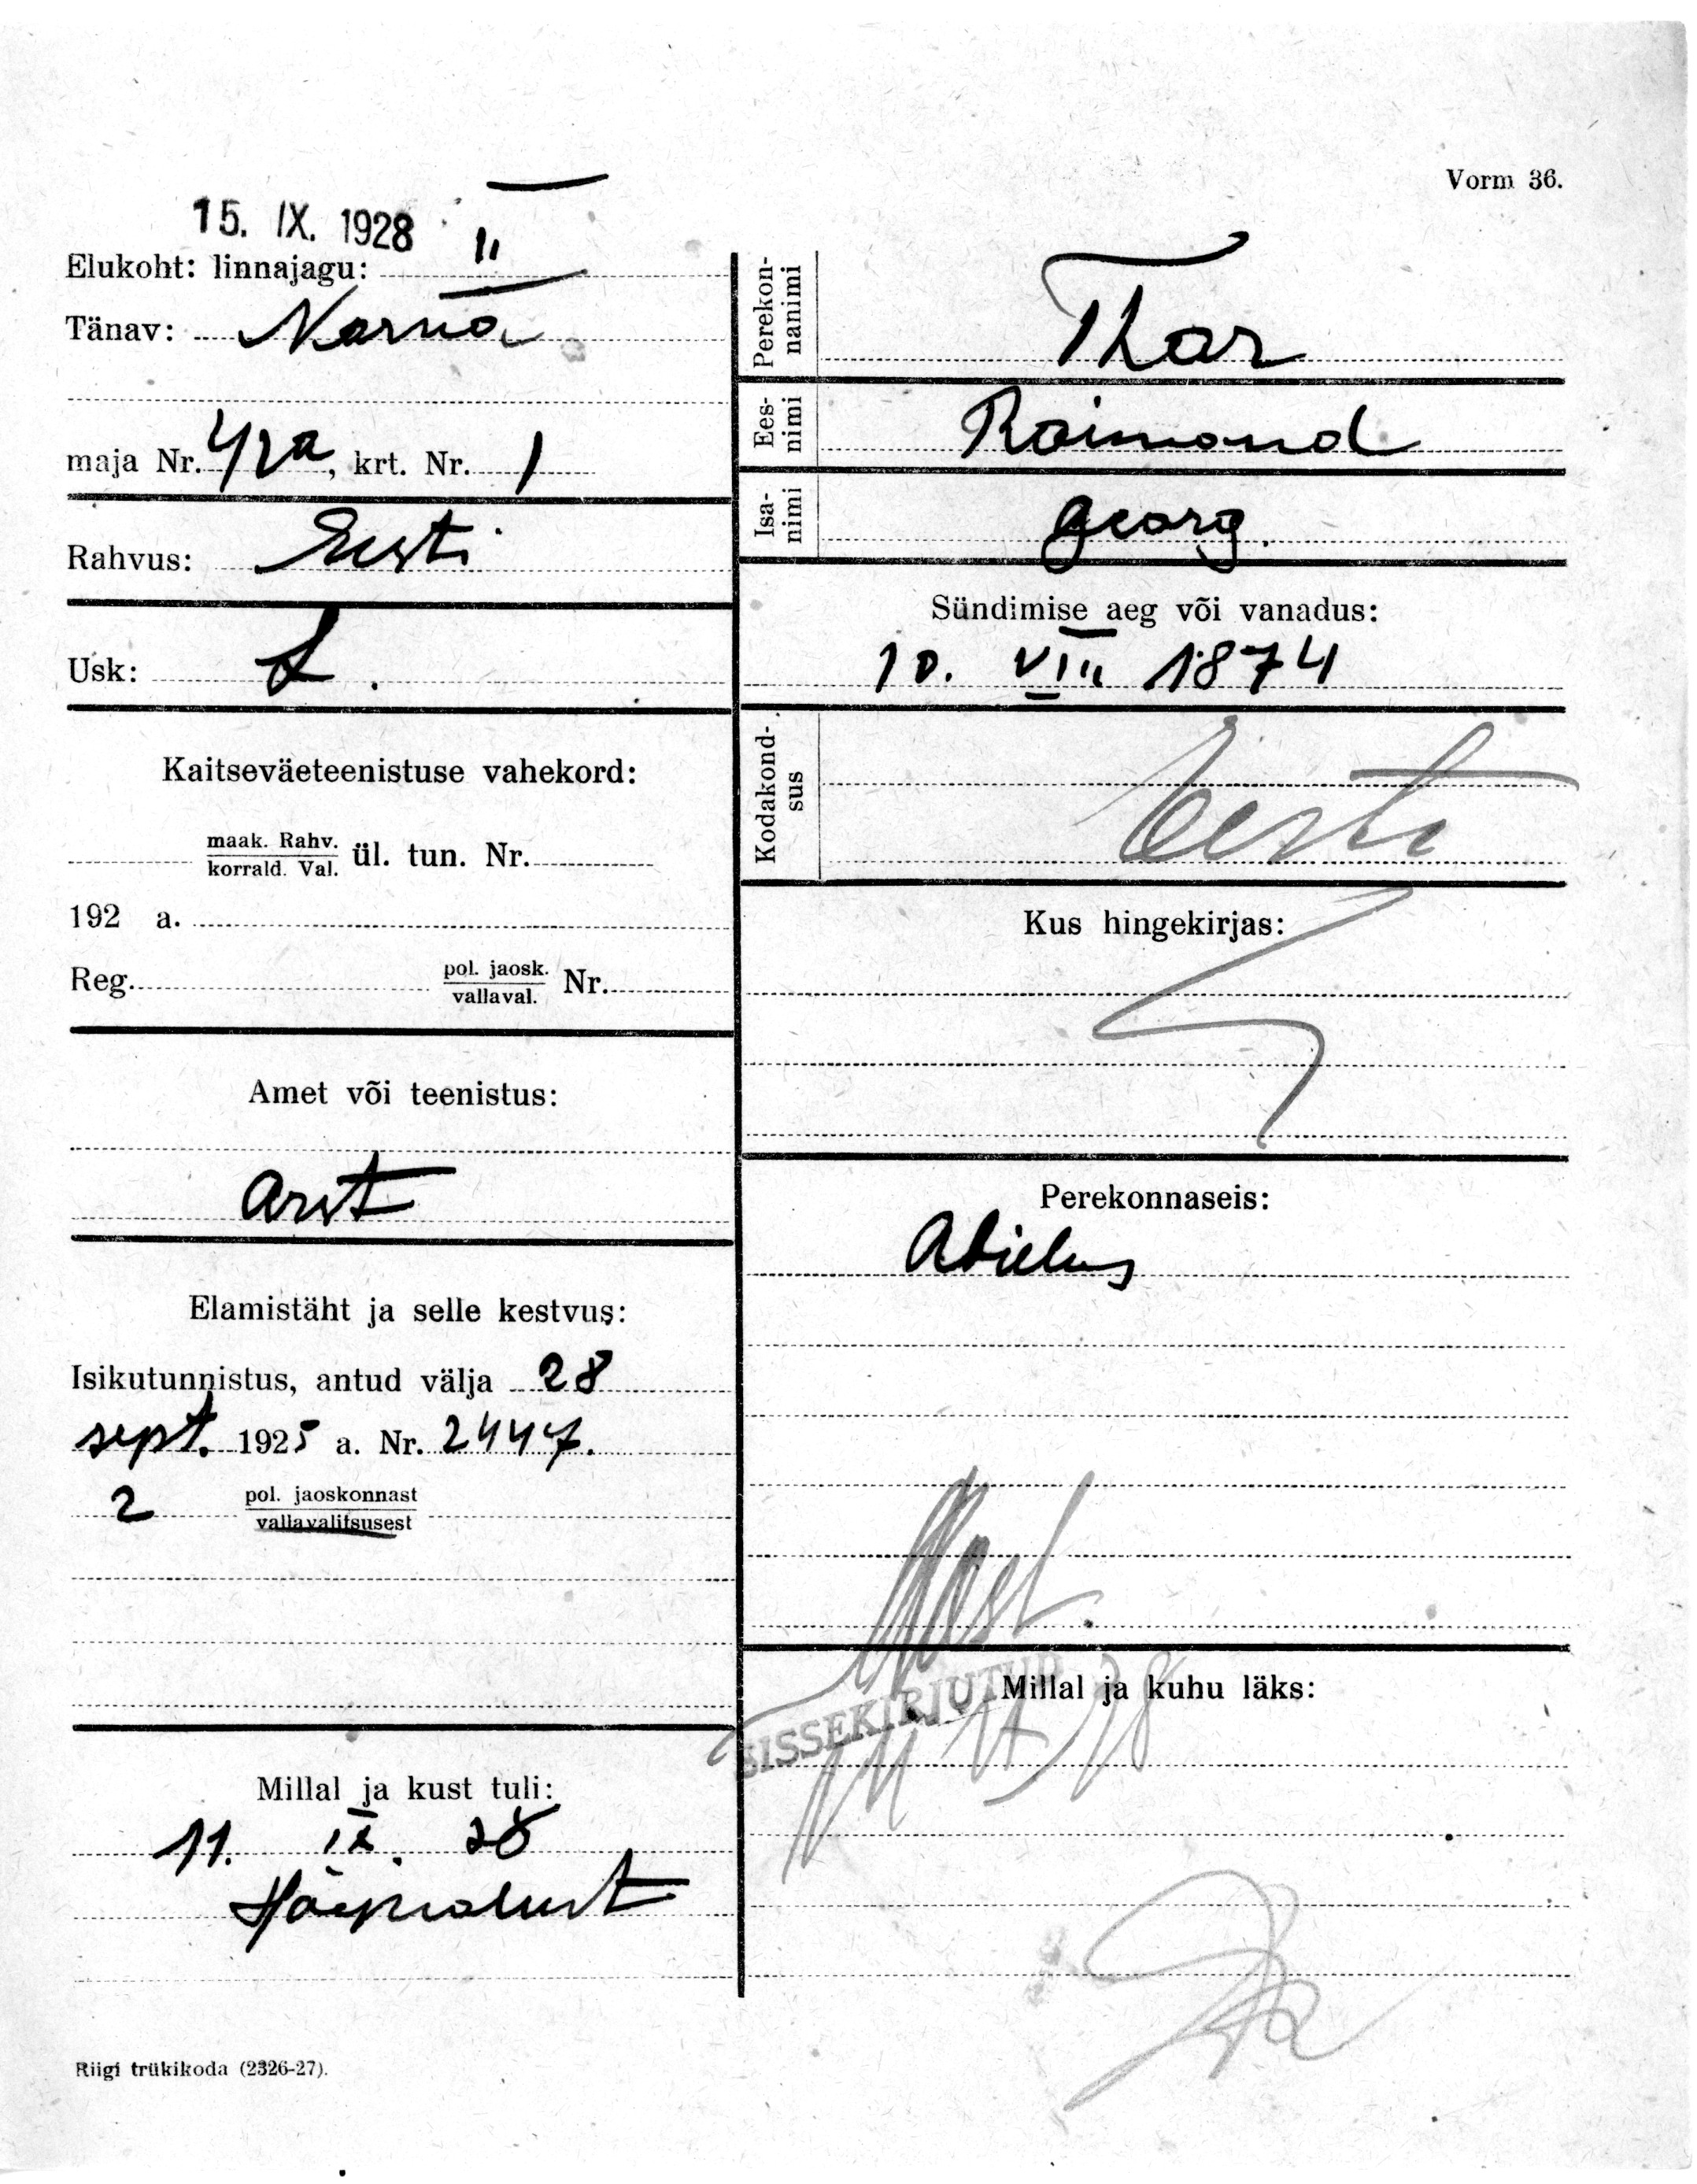 Vorm 36.
15. IX. 1928
Elukoht: linnajagu: II
Tänav: Narva
maja Nr. 42a, krt. Nr. 1
Rahvus: Eesti
Usk: L.
Kaitseväeteenistuse vahekord:
maak. Rahv.
korrald. Val. ül. tun. Nr.
192 a.
Reg. pol. jaosk.
vallaval. Nr.
Amet või teenistus:
arst
Elamistäht ja selle kestvus:
Isikutunnistus, antud välja 28
sept. 1925 a. Nr. 2447.
2 pol. jaoskonnast
vallavalitsusest
Millal ja kust tuli:
11. IX. 28
Riigi trükikoda (2326-27).
Perekon-
nanimi
Thar
Ees-
nimi
Raimond
Isa-
nimi
Georg.
Sündimise aeg või vanadus:
10. VIII 1874
Kodakond-
sus
Eesti
Kus hingekirjas:
Perekonnaseis:
Abielus
SISSEKIRJUTUD
Millal ja kuhu läks: